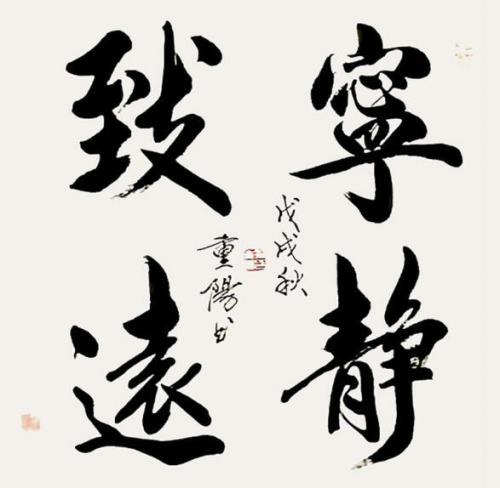 寧靜
致遠
戊戌秋
重陽書